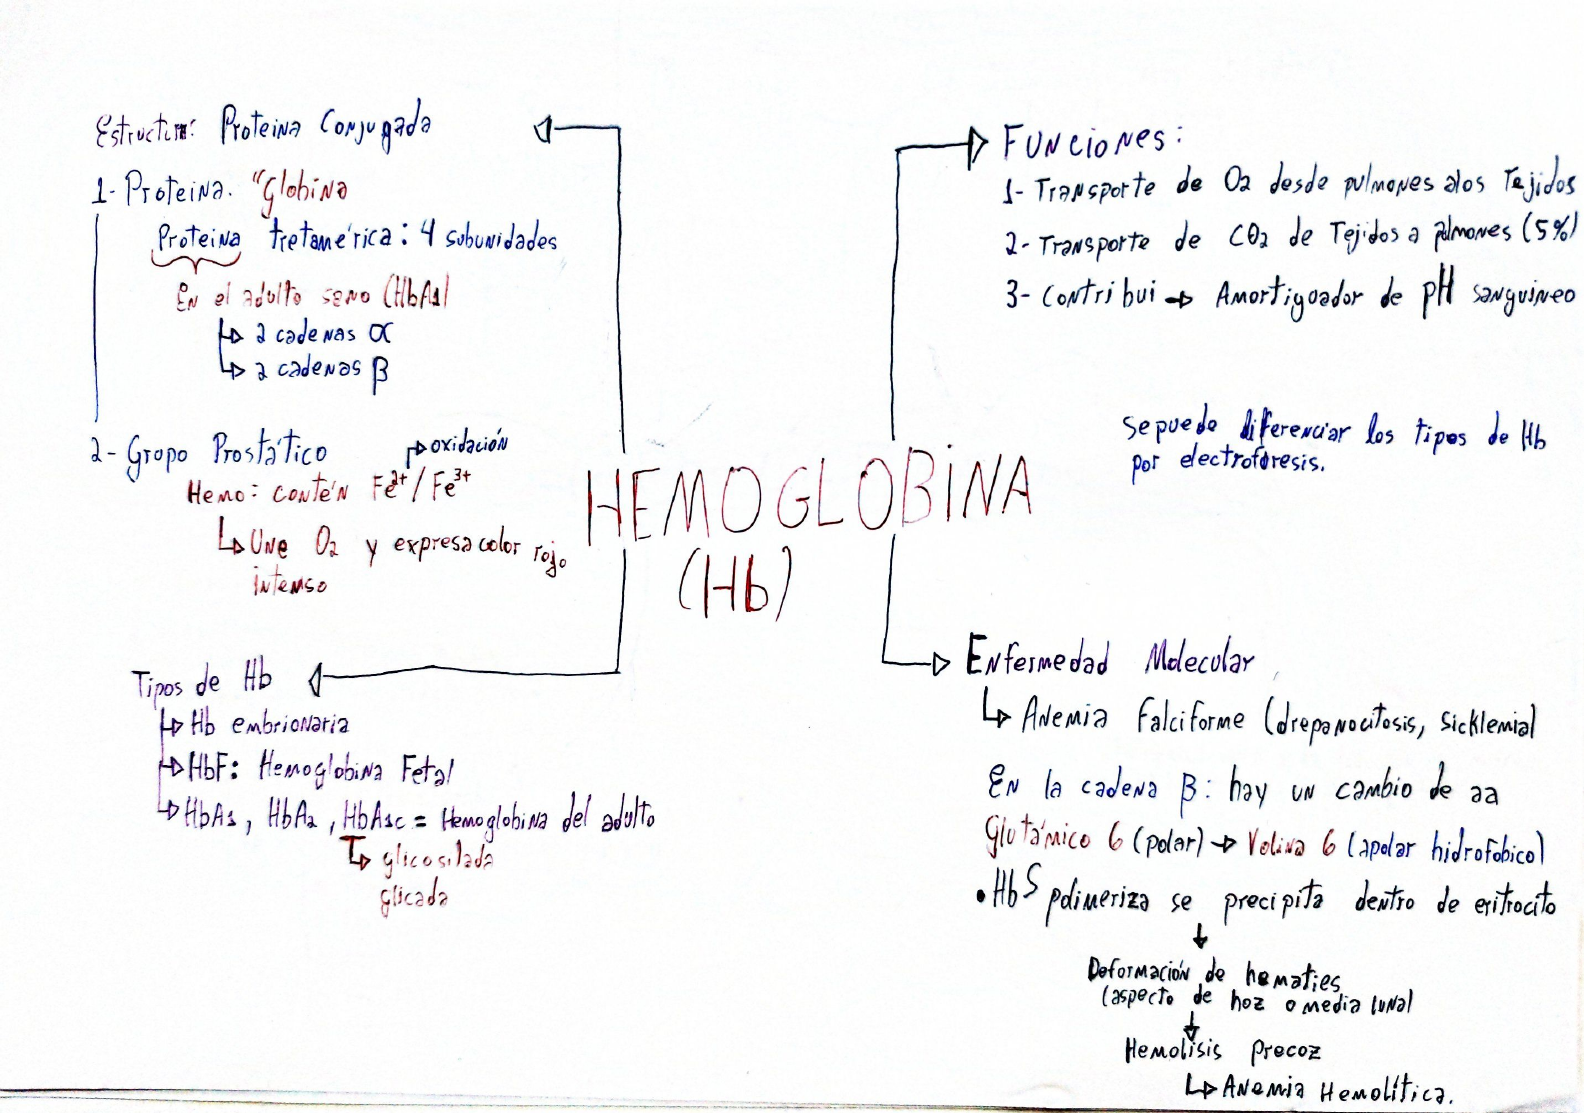 Estructura: Proteina Conjugada
1- Proteina. "Globina
Proteina tretamérica: 4 subunidades
En el adulto sano (HbA1)
2 cadenas α
2 cadenas β
2- Grupo Prostático
oxidación
Hemo: contén Fe2+/Fe3+
Une O2 y expresa color rojo
intenso
Tipos de Hb
Hb embrionaria
HbF: Hemoglobina Fetal
HbA1, HbA2, HbA1c = Hemoglobina del adulto
glicosilada
glicada
HEMOGLOBINA
(Hb)
Funciones:
1- Transporte de O2 desde pulmones a los Tejidos
2- Transporte de CO2 de Tejidos a pulmones (5%)
3- Contribui → Amortiguador de pH sanguineo
Se puede diferenciar los tipos de Hb
por electroforesis.
Enfermedad Molecular
Anemia Falciforme (drepanocitosis, sicklemia)
En la cadena β: hay un cambio de aa
Glutámico 6 (polar) → Valina 6 (apolar hidrofobico)
• HbS polimeriza se precipita dentro de eritrocito
Deformación de hematies
(aspecto de hoz o media luna)
Hemolisis precoz
Anemia Hemolítica.